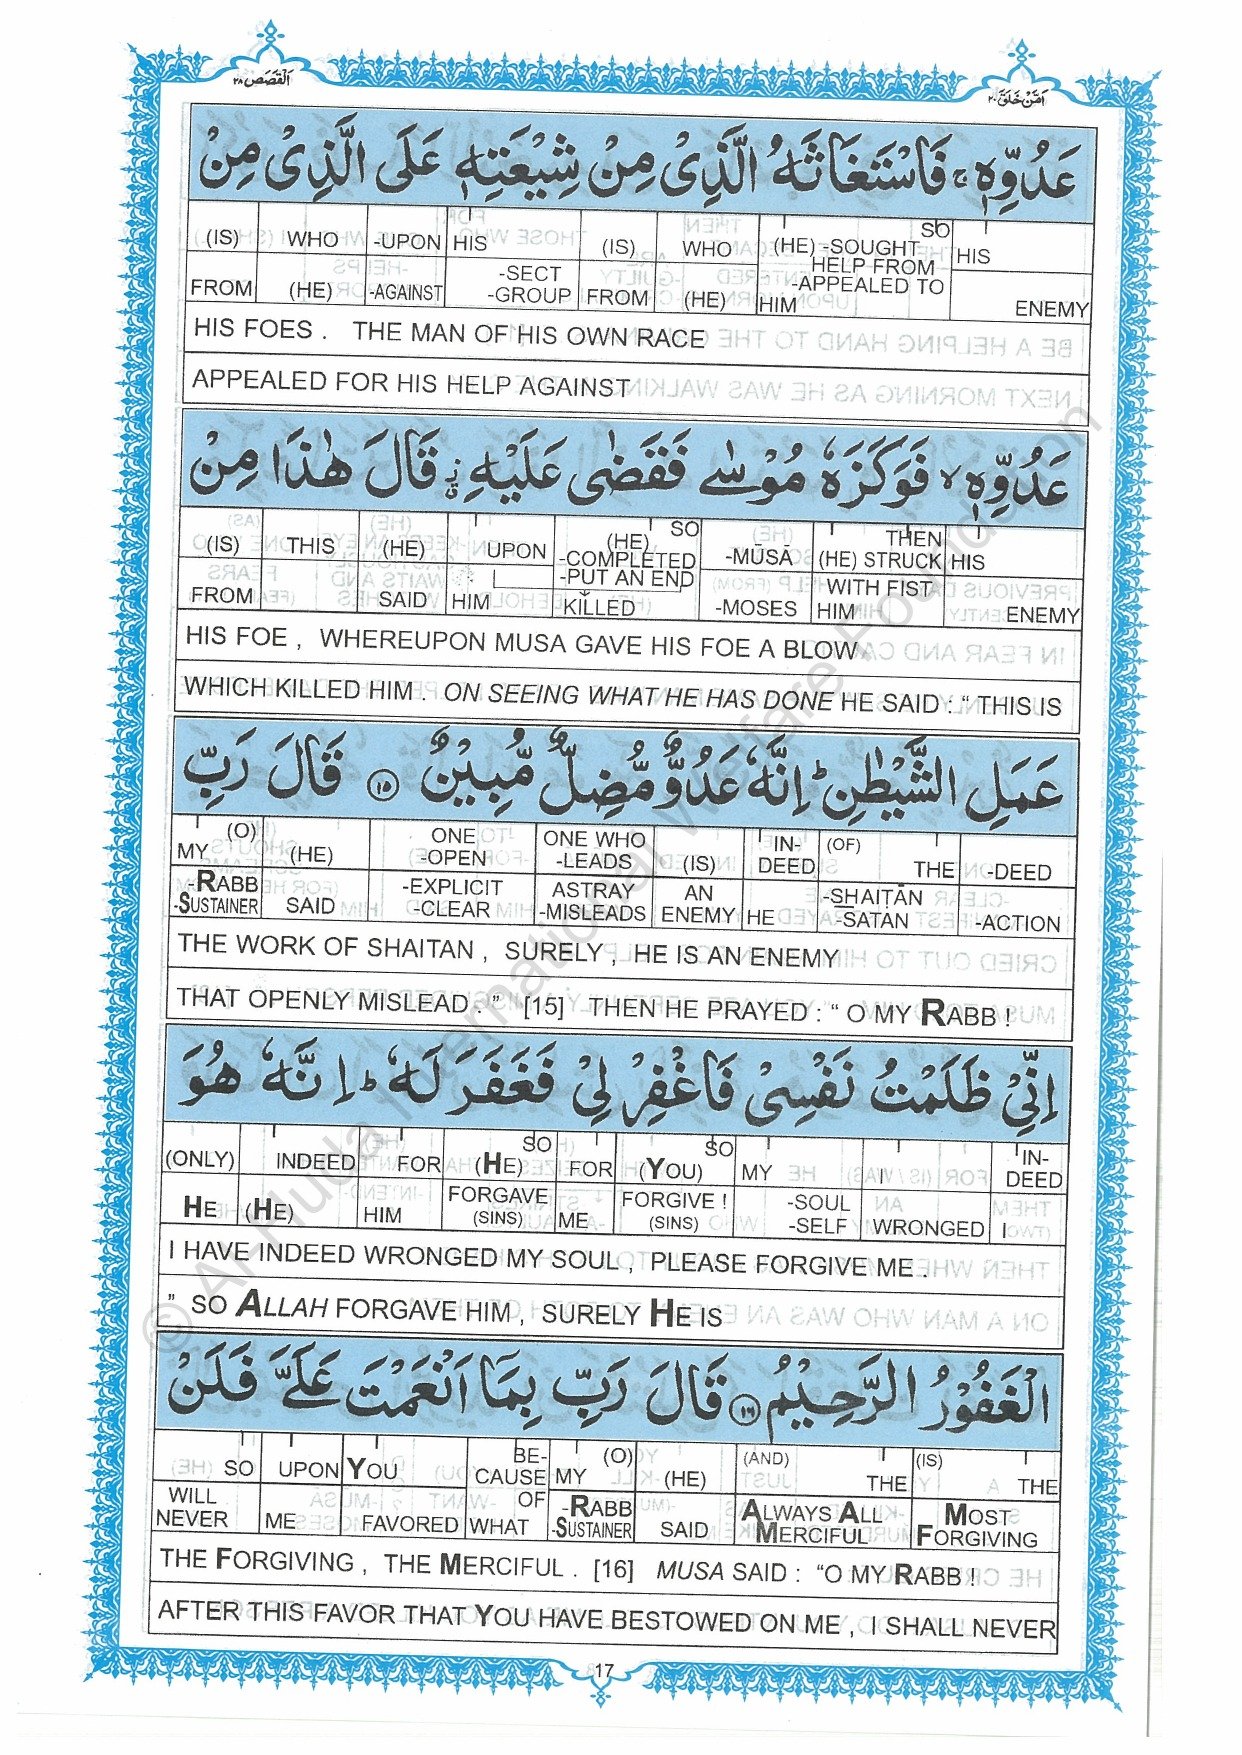 اَلْقَصَص ٢٨
اَمَّنْ خَلَقَ ٢٠
عَدُوِّهٖ ۚ فَاسْتَغَاثَهُ الَّذِیْ مِنْ شِیْعَتِهٖ عَلَی الَّذِیْ مِنْ
(IS) WHO -UPON HIS (IS) WHO (HE) -SOUGHT SO HIS
HELP FROM
FROM (HE) -AGAINST -SECT -GROUP FROM (HE) -APPEALED TO HIM ENEMY
HIS FOES . THE MAN OF HIS OWN RACE
APPEALED FOR HIS HELP AGAINST
عَدُوِّهٖ ۙ فَوَكَزَهٗ مُوْسٰی فَقَضٰی عَلَیْهِ ٘ۗ قَالَ هٰذَا مِنْ
(IS) THIS (HE) UPON (HE) SO -MŪSĀ THEN HIS
-COMPLETED (HE) STRUCK
-PUT AN END WITH FIST
FROM SAID HIM KILLED -MOSES HIM ENEMY
HIS FOE , WHEREUPON MUSA GAVE HIS FOE A BLOW
WHICH KILLED HIM . ON SEEING WHAT HE HAS DONE HE SAID : “ THIS IS
عَمَلِ الشَّیْطٰنِ ؕ اِنَّهٗ عَدُوٌّ مُّضِلٌّ مُّبِیْنٌ ۝١٥ قَالَ رَبِّ
MY (O) (HE) ONE -OPEN ONE WHO -LEADS (IS) IN-DEED (OF) THE -DEED
-RABB -SUSTAINER SAID -EXPLICIT -CLEAR ASTRAY -MISLEADS AN ENEMY HE -SHAIṬĀN -SATAN -ACTION
THE WORK OF SHAITAN , SURELY , HE IS AN ENEMY
THAT OPENLY MISLEAD . ” [15] THEN HE PRAYED : “ O MY RABB !
اِنِّیْ ظَلَمْتُ نَفْسِیْ فَاغْفِرْ لِیْ فَغَفَرَ لَهٗ ؕ اِنَّهٗ هُوَ
(ONLY) INDEED FOR (HE) SO FOR (YOU) SO MY I IN-DEED
HE (HE) HIM FORGAVE (SINS) ME FORGIVE ! (SINS) -SOUL -SELF WRONGED I
I HAVE INDEED WRONGED MY SOUL , PLEASE FORGIVE ME .
” SO ALLAH FORGAVE HIM , SURELY HE IS
الْغَفُوْرُ الرَّحِیْمُ ۝١٦ قَالَ رَبِّ بِمَاۤ اَنْعَمْتَ عَلَیَّ فَلَنْ
SO UPON YOU BE-CAUSE MY (O) (HE) (AND) THE (IS) THE
WILL NEVER ME FAVORED OF WHAT -RABB -SUSTAINER SAID ALWAYS ALL MERCIFUL MOST FORGIVING
THE FORGIVING , THE MERCIFUL . [16] MUSA SAID : “O MY RABB !
AFTER THIS FAVOR THAT YOU HAVE BESTOWED ON ME , I SHALL NEVER
17
© Al-Huda International Welfare Foundation